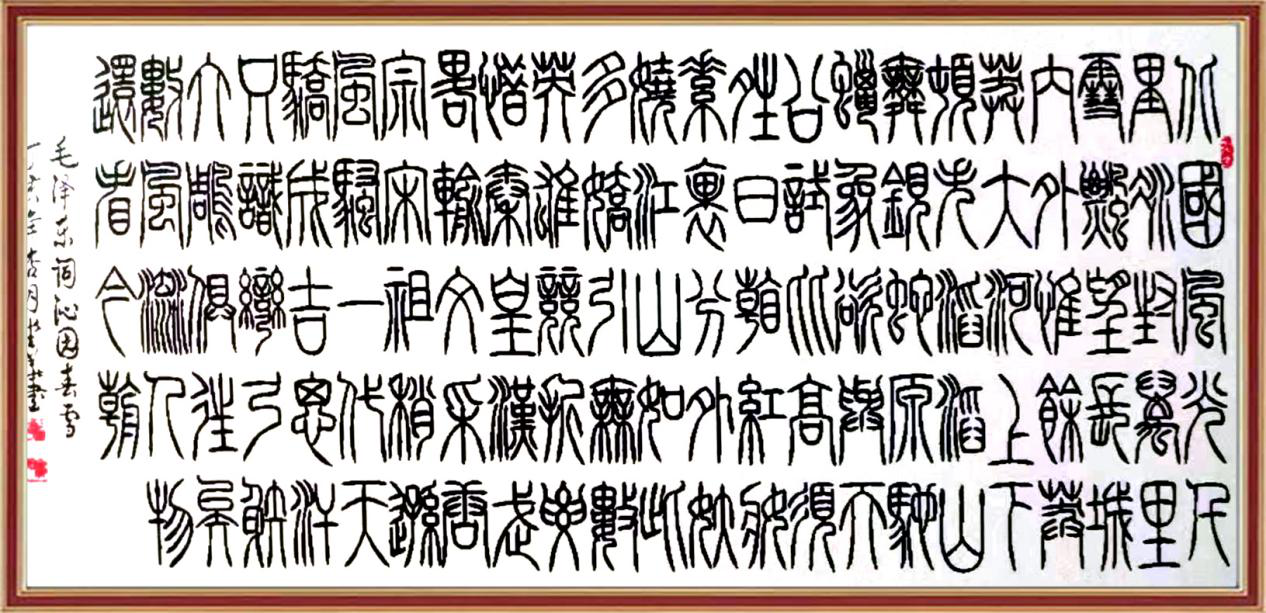 北國風光千
里冰封萬里
雪飄望長城
內外惟餘莽
莽大河上下
頓失滔滔山
舞銀蛇原馳
蠟象欲與天
公試比高須
晴日看紅裝
素裹分外妖
嬈江山如此
多嬌引無數
英雄競折腰
惜秦皇漢武
略輸文采唐
宗宋祖稍遜
風騷一代天
驕成吉思汗
只識彎弓射
大雕俱往矣
數風流人物
還看今朝
毛泽东词沁园春雪
丁亥年杏月書